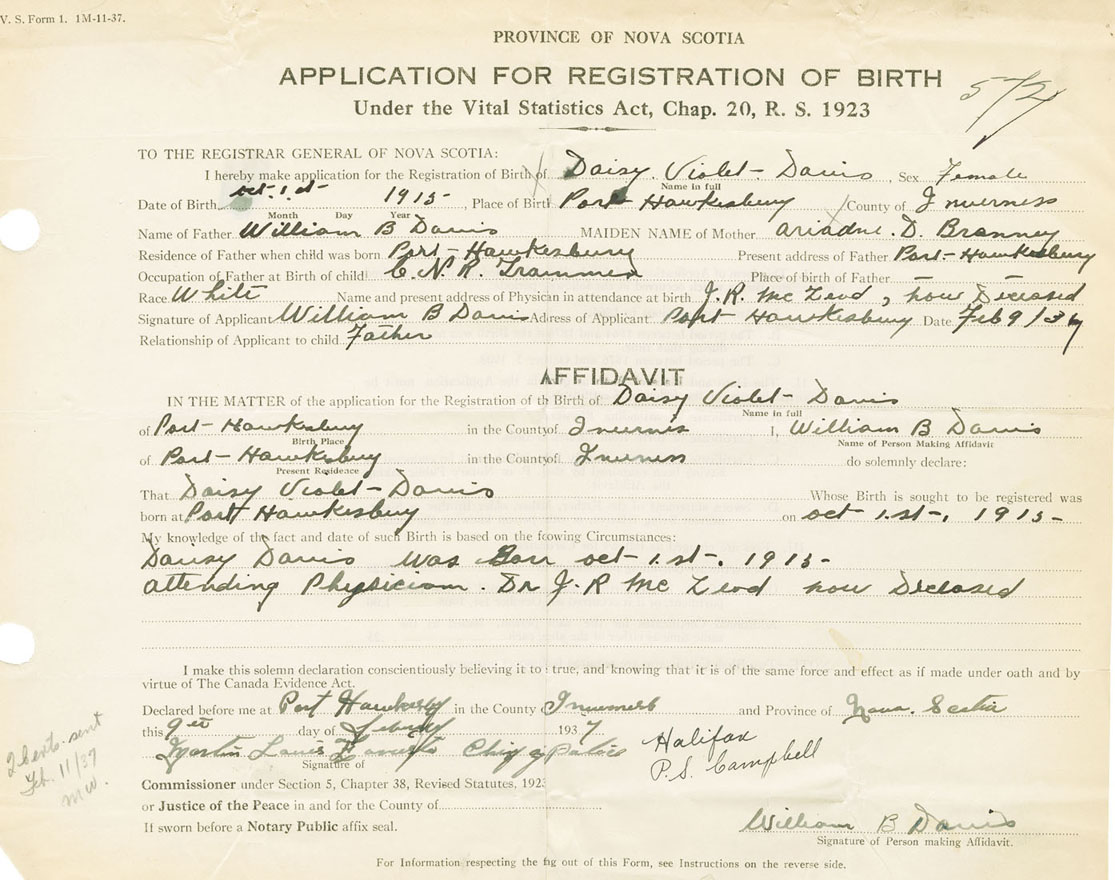 V. S. Form 1. 1M-11-37.
PROVINCE OF NOVA SCOTIA
APPLICATION FOR REGISTRATION OF BIRTH
Under the Vital Statistics Act, Chap. 20, R. S. 1923
TO THE REGISTRAR GENERAL OF NOVA SCOTIA:
I hereby make application for the Registration of Birth of Daisy Violet Davis, Sex Female
Name in full
Date of Birth oct 1.st 1915, Place of Birt Port Hawkesbury County of Inverness
Month Day Year
Name of Father William B Davis MAIDEN NAME of Mother Ariadne. D. Branney
Residence of Father when child was born Port-Hawkesbury Present address of Father Port-Hawkesbury
Occupation of Father at Birth of child C.N.R. Trainmen Place of birth of Father
Race White Name and present address of Physician in attendance at birth J.R. Mc Leod, now Deceased
Signature of Applicant William B Davis Adress of Applicant Port Hawkesbury Date Feb 9/37
Relationship of Applicant to child Father
AFFIDAVIT
IN THE MATTER of the application for the Registration of th Birth of Daisy Violet-Davis
Name in full
of Port-Hawkesbury in the County of Invernis I, William B Davis
Birth Place Name of Person Making Affidavit
of Port-Hawkesbury in the County of Inverness do solemnly declare:
Present Residence
That Daisy Violet-Davis Whose Birth is sought to be registered was
born at Port Hawkesbury on oct 1.st, 1915-
My knowledge of the fact and date of such Birth is based on the fcowing Circumstances:
Daisy Davis was Born oct 1.st, 1915-
attending Physiciam. Dr J.R Mc Leod now Deceased
I make this solemn declaration conscientiously believing it to true, and knowing that it is of the same force and effect as if made under oath and by
virtue of The Canada Evidence Act.
Declared before me at Port Hawkesby in the County Inverness and Province of Nova. Scotia
this 9 day of 1937
Louis Chief of Police Halifax
Signature of P.S. Campbell
Commissioner under Section 5, Chapter 38, Revised Statutes, 1923
or Justice of the Peace in and for the County of
If sworn before a Notary Public affix seal.
William B Davis
Signature of Person making Affidavit.
For Information respecting the fig out of this Form, see Instructions on the reverse side.
sent
Feb. 11/37
mw.